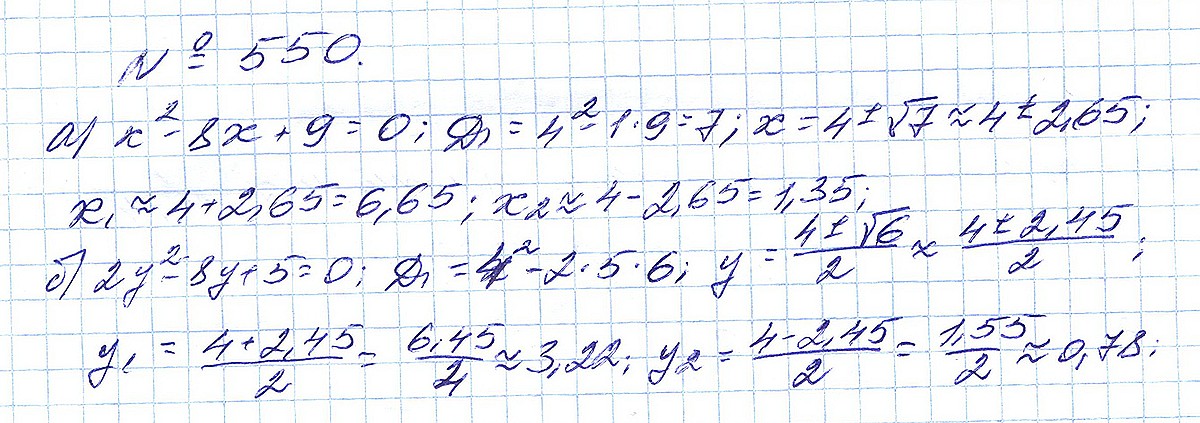 № 550.
а) x² - 8x + 9 = 0; D₁ = 4² - 1·9 = 7; x = 4 ± √7 ≈ 4 ± 2,65;
x₁ ≈ 4 + 2,65 = 6,65; x₂ ≈ 4 - 2,65 = 1,35;
б) 2y² - 8y + 5 = 0; D₁ = 4² - 2·5·6; y = (4 ± √6)/2 ≈ (4 ± 2,45)/2;
y₁ = (4 + 2,45)/2 = 6,45/2 ≈ 3,22; y₂ = (4 - 2,45)/2 = 1,55/2 ≈ 0,78;